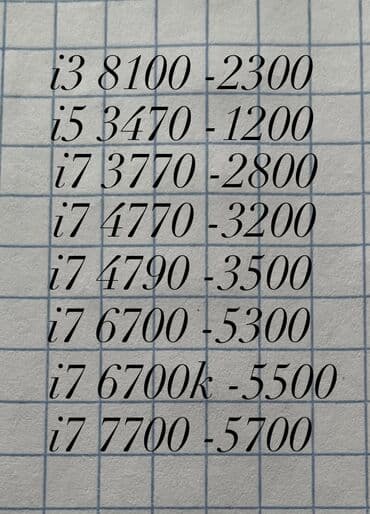 i3 8100 -2300
i5 3470 -1200
i7 3770 -2800
i7 4770 -3200
i7 4790 -3500
i7 6700 -5300
i7 6700k -5500
i7 7700 -5700